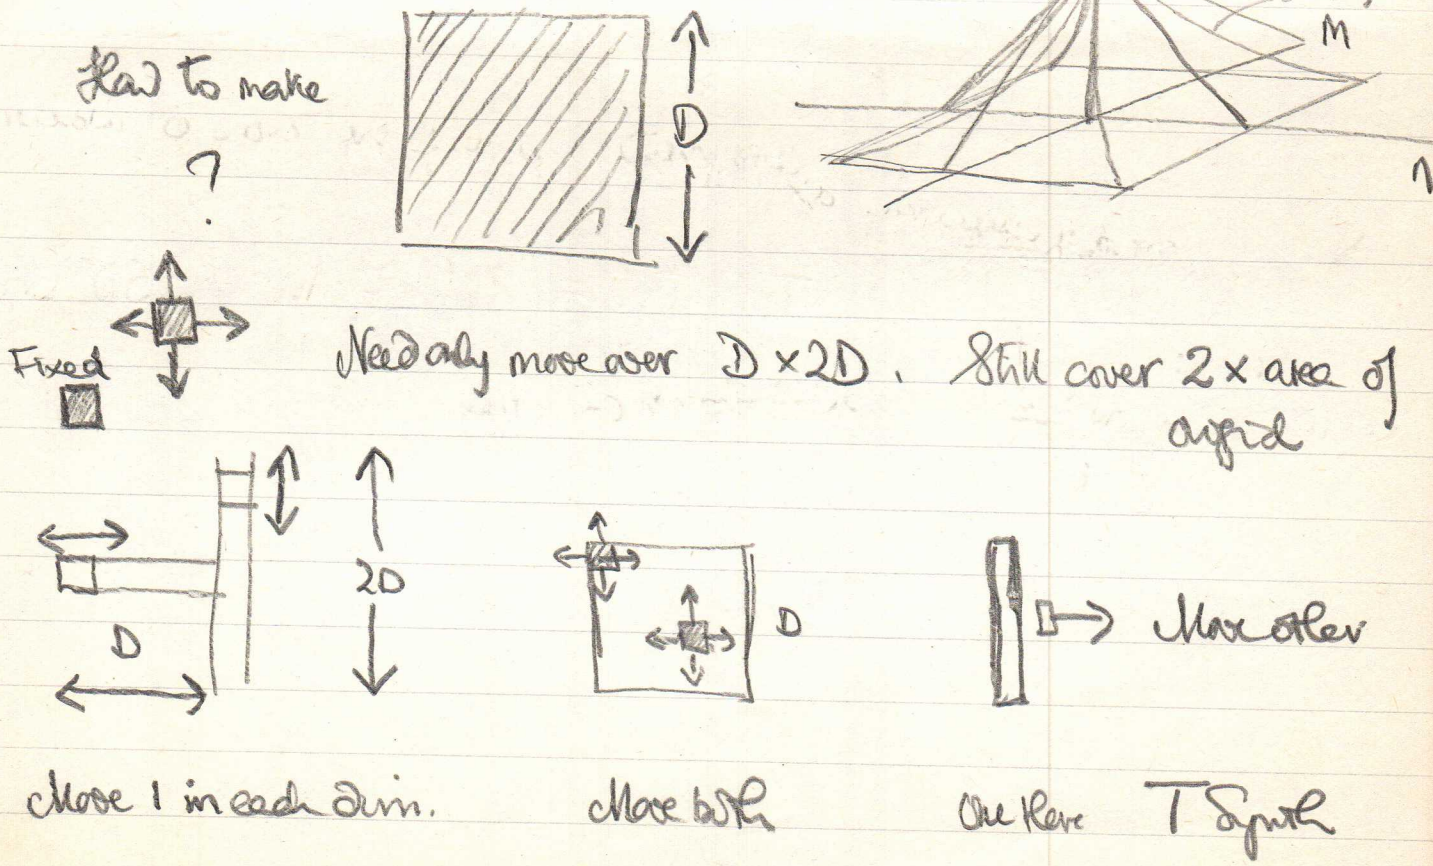 M
How to make
D
?
Fixed
Need only move over D x 2D. Still cover 2 x area of
orifid
2D
D
D
Move other
Move 1 in each dim.
Move both
One there T Synth